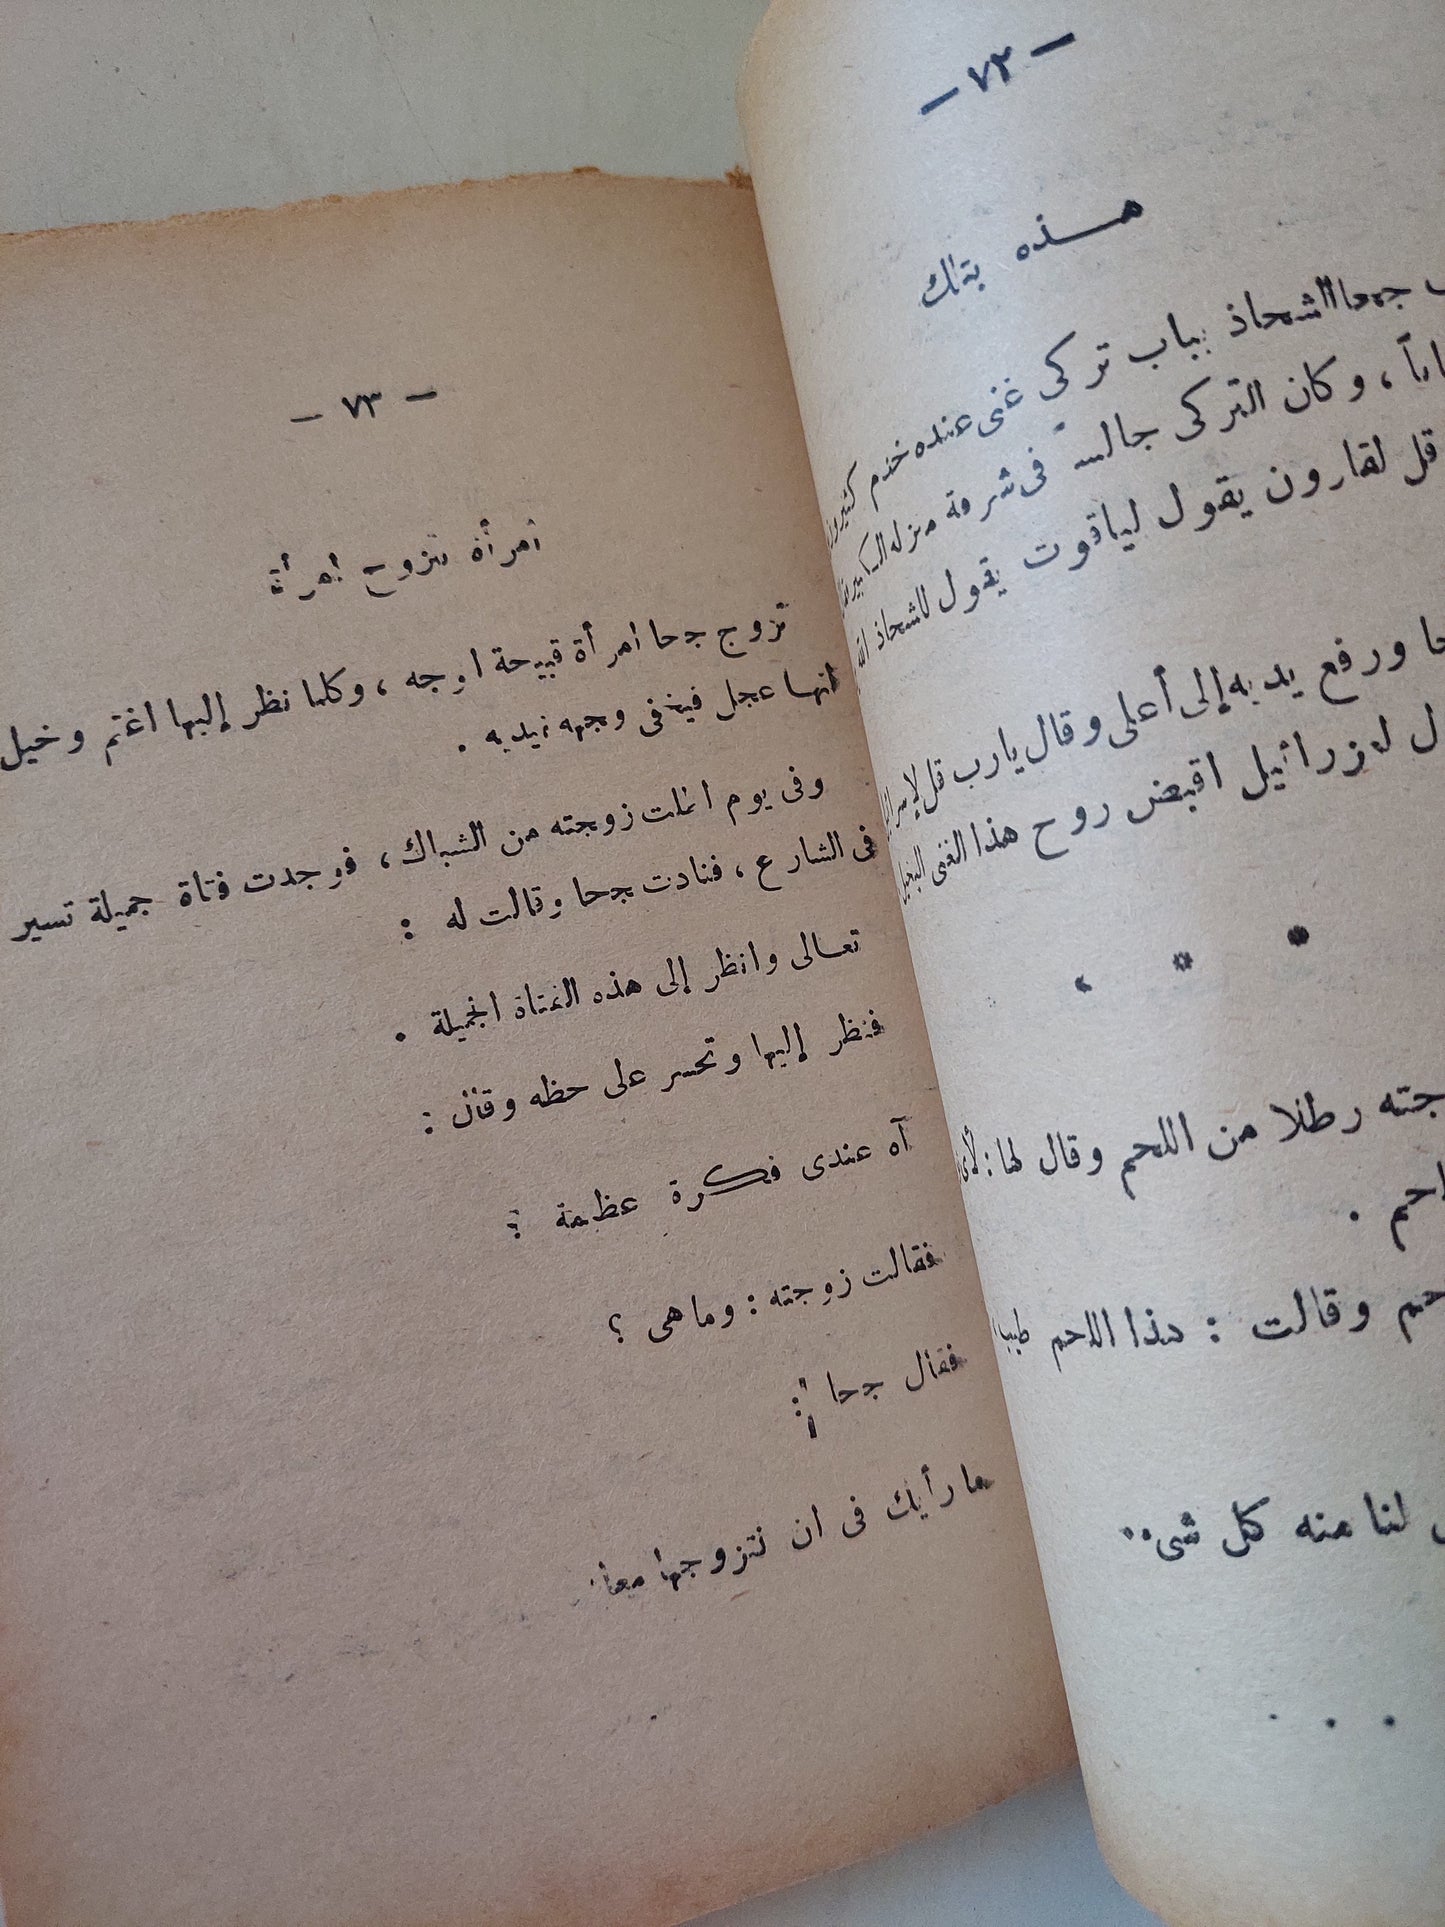 — ٧٢ —
هـــذه بتلك
جحا الشحاذ بباب تركى غنى عنده خدم كثيرون
، وكان التركى جالســـا فى شرفة منزله الكبير فقال
قل لقارون يقول لياقوت يقول للشحاذ الله
ورفع يديه إلى أعلى وقال يارب قل لإسرافيل
لعزرائيل اقبض روح هذا الغنى البخيل
* * *
رطلا من اللحم وقال لها : لأى
وقالت : هذا اللحم
لنا منه كل شىء
. . .
— ٧٣ —
امرأة تتزوج امرأة
تزوج جحا امرأة قبيحة الوجه ، وكلما نظر إليها اغتم وخيل
انهـا عجل فيخفى وجهه بيديه .
وفى يوم اطلت زوجته من الشباك ، فوجدت فتاة جميلة تسير
فى الشارع ، فنادت جحا وقالت له :
تعـالى وانظر إلى هذه الفتاة الجميلة .
فنظر إليها وتحسر على حظه وقال :
آه عندى فكرة عظيمة :
فقالت زوجته : وما هى ؟
فقال جحا :
ما رأيك فى ان نتزوجها معا